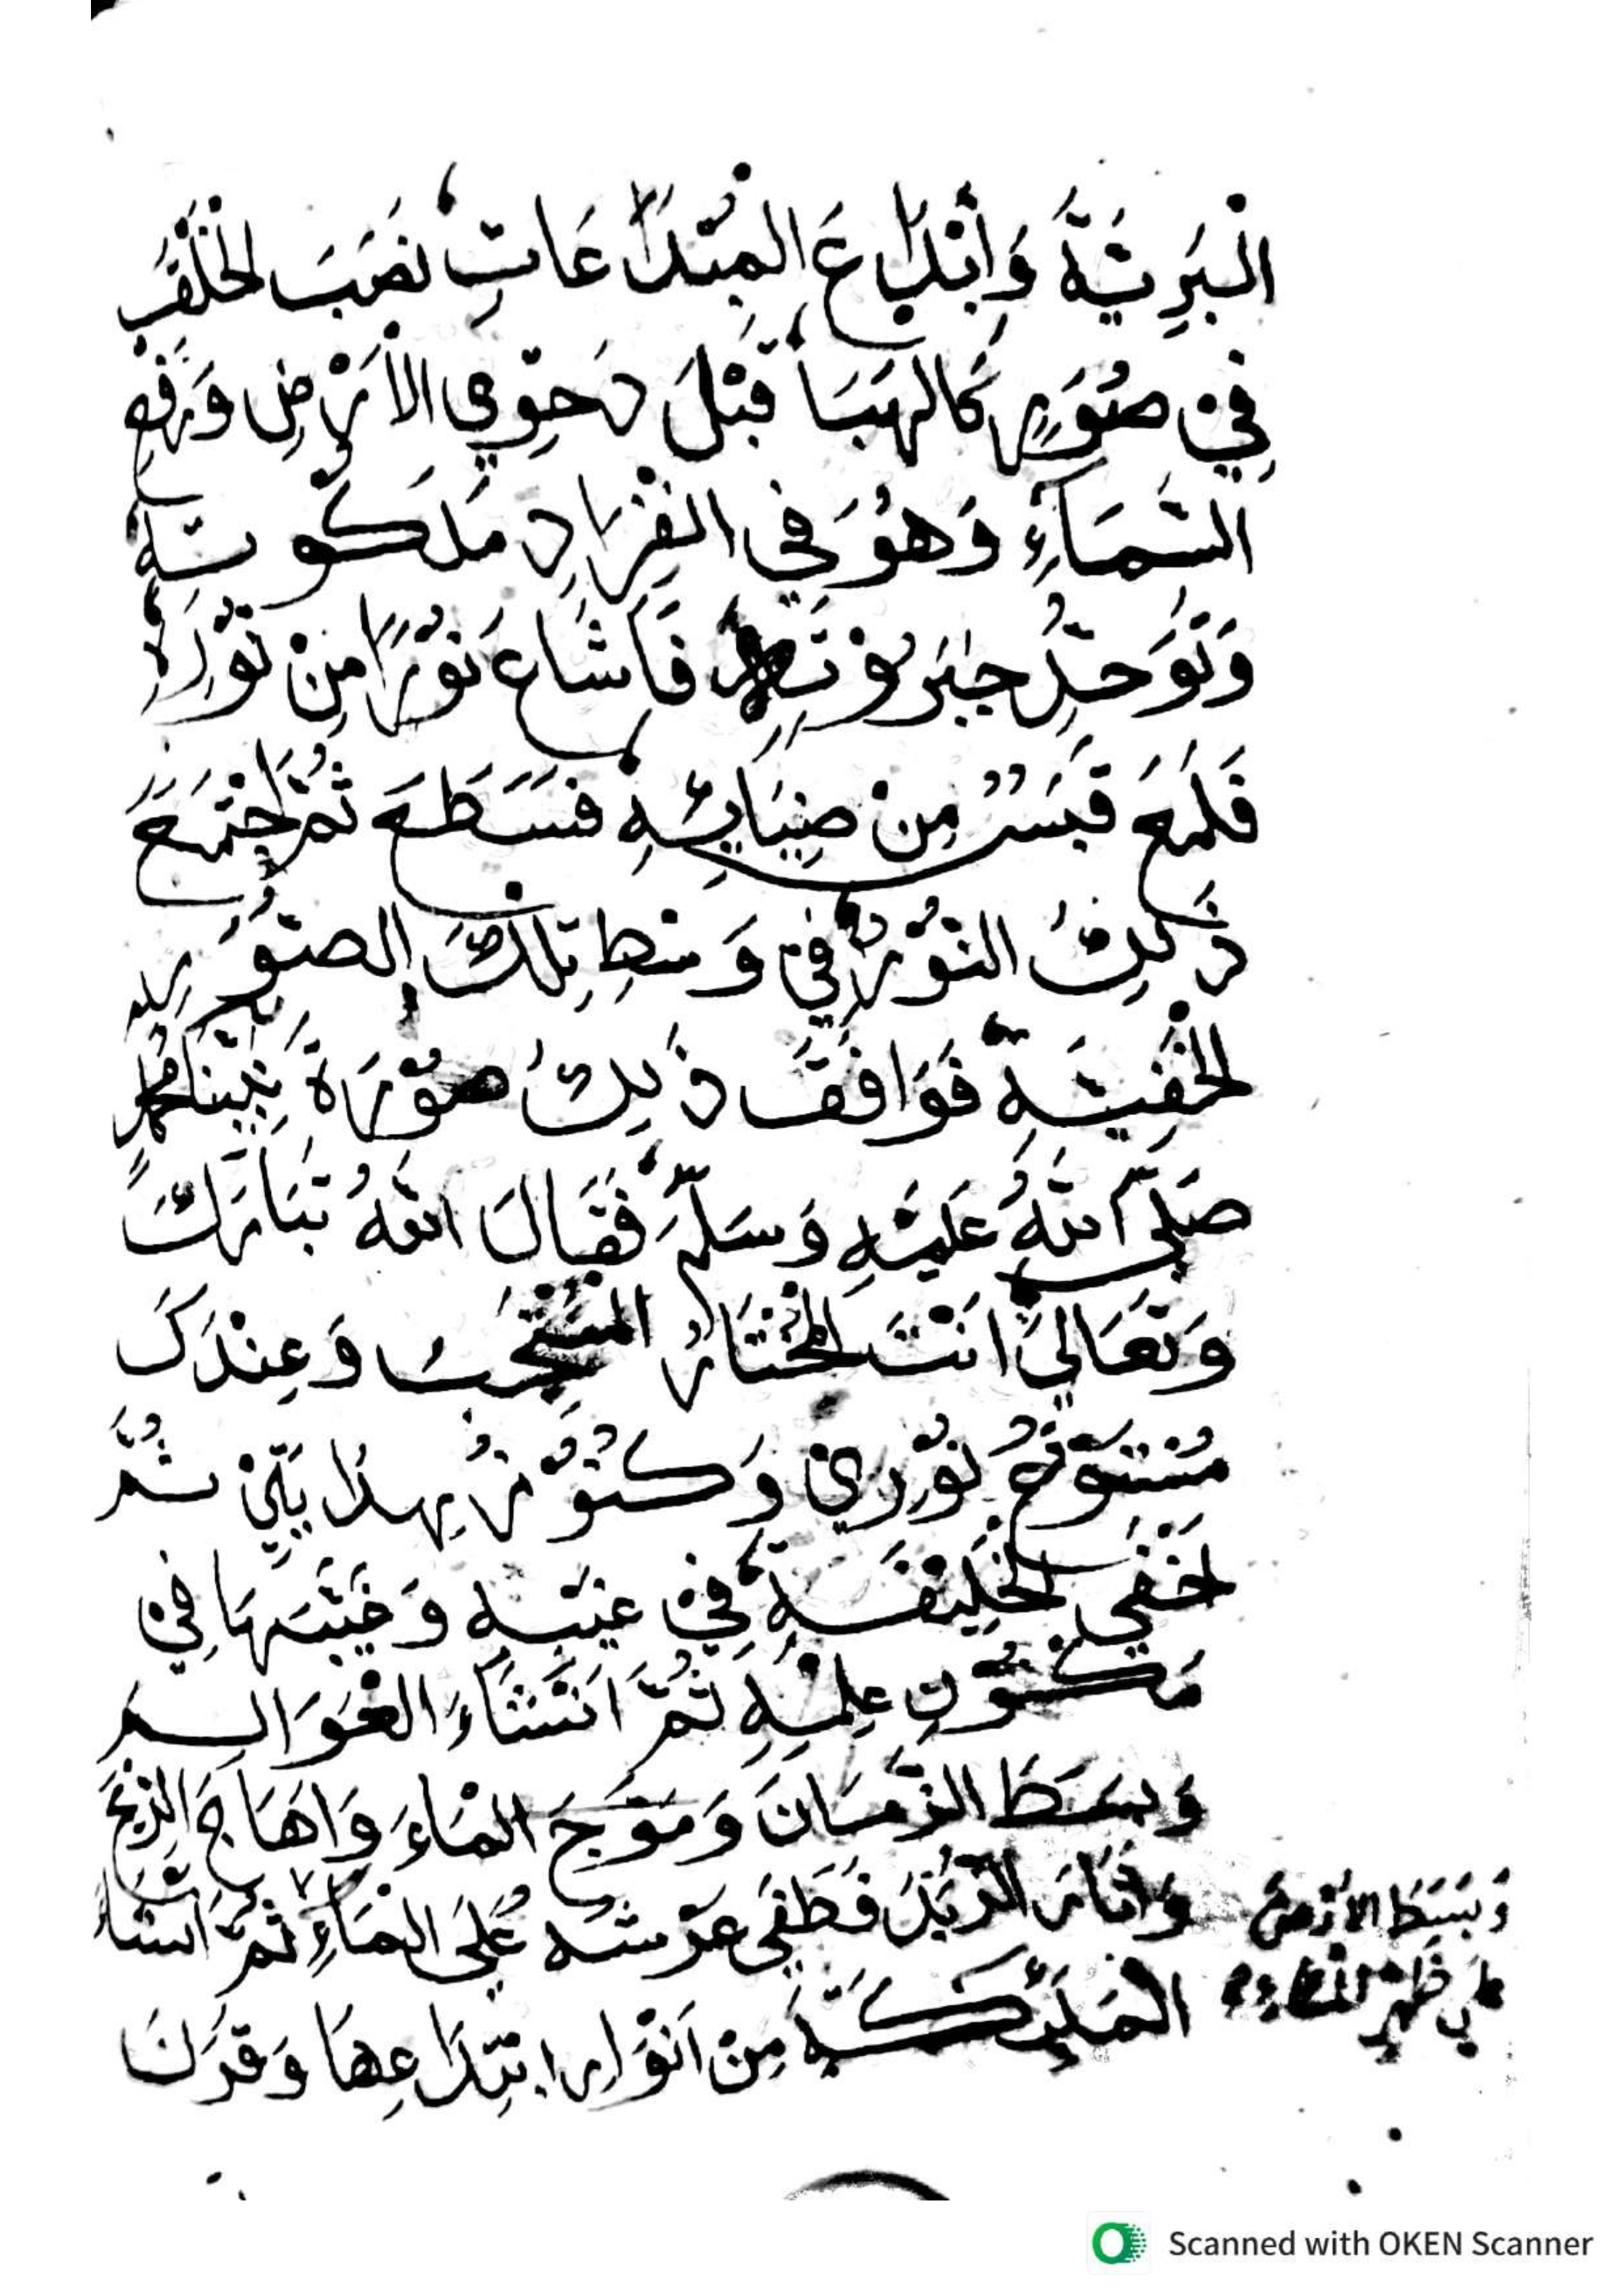 الْبَرِيَّةَ وَأبْدَاعَ الْمبْتَدَاعَاتِ نصَبَ الْخَلْقَ
فِيْ صُوَرٍ كَالهَبَا قَبْلَ دَحْوِي الاَرْضِ وَرَفْعِ
السَّمَآءِ وَهُوَ فِي انْفِرَادِ مَلَكُوْتِهِ
وَتَوَحُّدِ جَبَرُوْتِهِ فَاَشَاعَ نُوْرًا مِنْ نُوْرِهِ
فَلَمَعَ قَبَسٌ مِنْ ضِيَائِهِ فَسَطَعَ ثُمَّ اجْتَمَعَ
ذٰلِكَ النُّوْرُ فِيْ وَسْطِ تِلْكَ الصُّوَرِ
الْخَفِيَّةِ فَوَافَقَ ذٰلِكَ صُوْرَةَ نَبِيِّنَا مُحَمَّدٍ
صَلَّي اللّٰهُ عَلَيْهِ وَسَلَّمَ فَقَالَ اللّٰهُ تَبَارَكَ
وَتَعَالٰي اَنْتَ الْمُخْتَارُ الْمُنْتَخَبُ وَعِنْدَكَ
مُسْتَوْدَعُ نُوْرِيْ وَكُنُوْزُ هِدَايَتِيْ ثُمَّ
اَخْفَي الْخَلِيْقَةِ فِيْ غَيْبِهِ وَغَيَّبَهَا فِيْ
مَكْنُوْنِ عِلْمِهِ ثُمَّ اَنْشَاَءَ الْعَوَالِمَ
وَبَسَطَ الزَّمَانَ وَمَوَّجَ الْمَاءَ وَاَهَاجَ الرِّيْحَ
وَاَثَارَ الزَّبَدَ فَطَفَي عَرْشُهُ عَلَي الْمَاءِ ثُمَّ اَنْشَاءَ
الْمَلٰئِكَةِ مِنْ اَنْوَارِ ابْتِدَاعِهَا وَقَرَنَ
وَبَسَطَ الاَرْضَ
عَلٰي ظَهْرِ الْمَاءِ